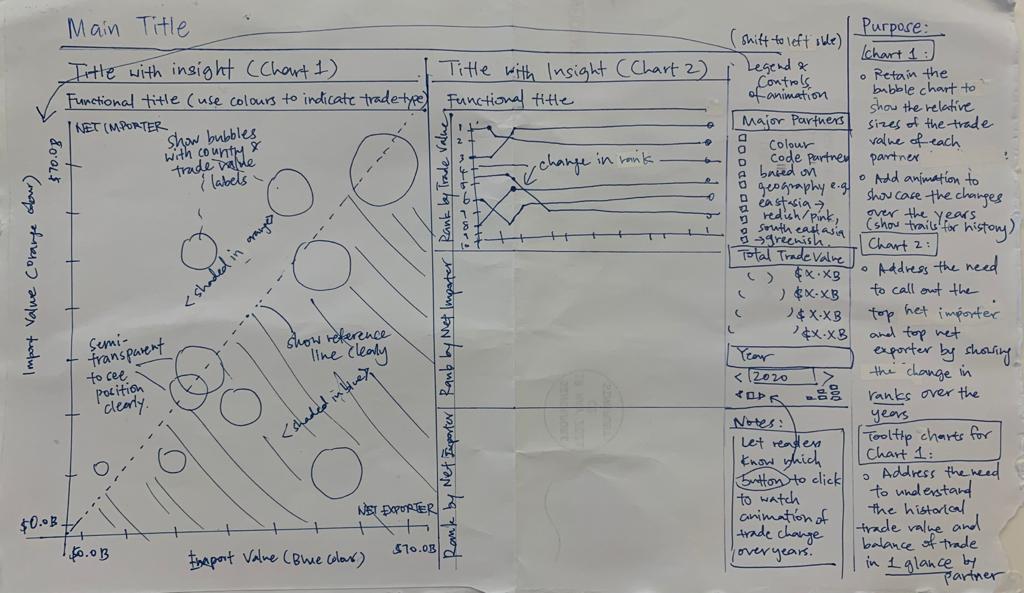 Main Title
Title with insight (Chart 1)
Functional title (use colours to indicate trade type)
NET IMPORTER
$70.0B
Import Value (Orange colour)
$0.0B
Show bubbles
with country &
trade value
labels
<shaded in orange>
Semi-
transparent
to see
position
clearly.
show reference
line clearly
<shaded in blue>
NET EXPORTER
$0.0B
Import Value (Blue colour)
$70.0B
Title with Insight (Chart 2)
Functional title
Rank by Trade Value
1
2
3
change in rank
Rank by Net Importer
Rank by Net Exporter
(shift to left side)
Legend &
Controls
of animation
Major Partners
Colour
Code partner
based on
geography e.g
east asia →
redish/pink,
south east asia
→ greenish.
Total Trade Value
( ) $X.XB
( ) $X.XB
( ) $X.XB
( ) $X.XB
Year
< 2020 >
Notes:
Let readers
know which
button to click
to watch
animation of
trade change
over years.
Purpose:
Chart 1:
Retain the
bubble chart to
show the relative
sizes of the trade
value of each
partner
Add animation to
showcase the changes
over the years
(show trails for history)
Chart 2:
Address the need
to call out the
top net importer
and top net
exporter by showing
the change in
ranks over the
years
Tooltip charts for
Chart 1:
Address the need
to understand
the historical
trade value and
balance of trade
in 1 glance by
partner